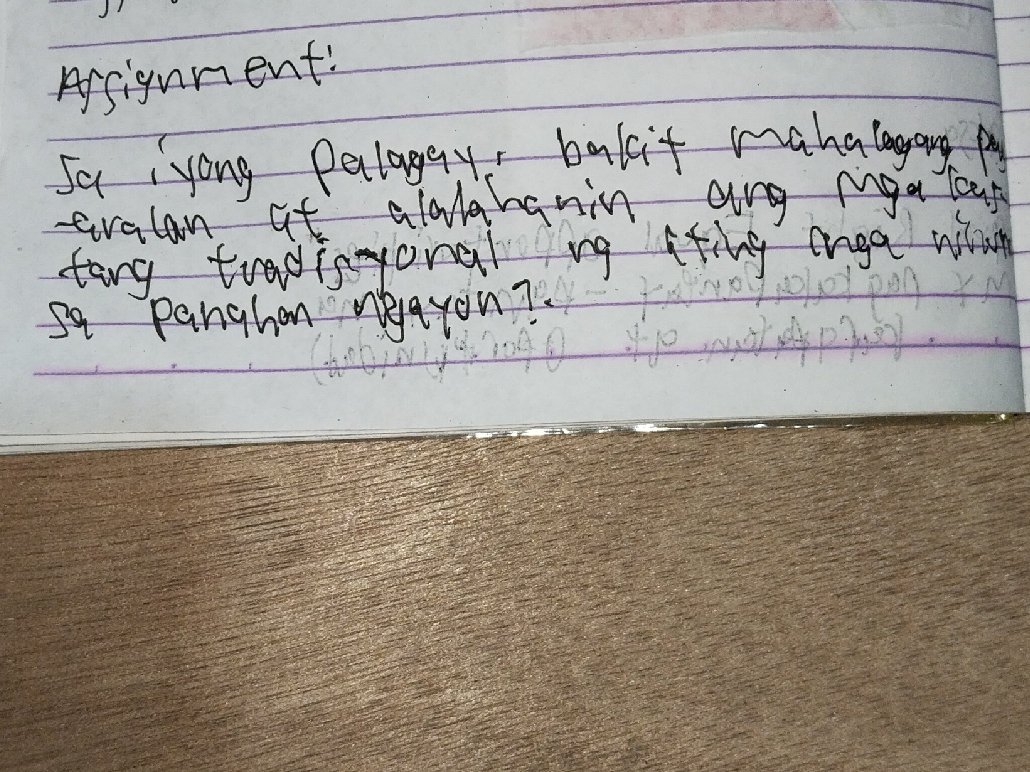 Assignment:
Sa iyong Palagay, bakit mahalagang pag
-aralan at alalahanin ang mga kasu
tang tradisyonal ng ating mga ninun
sa panahon ngayon?